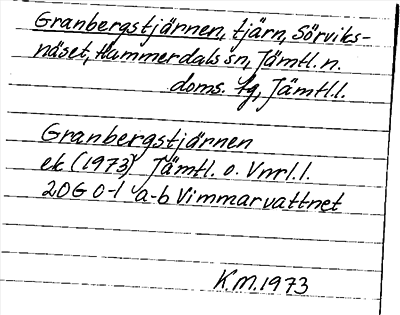 Granbergstjärnen, tjärn, Sörviks-
näset, Hammerdals sn, Jämtl. n.
doms. tg, Jämtl.l.
Granbergstjärnen
ek (1973) Jämtl. o. Vnrl.l.
20G 0-1 a-b Vimmarvattnet
K.M.1973